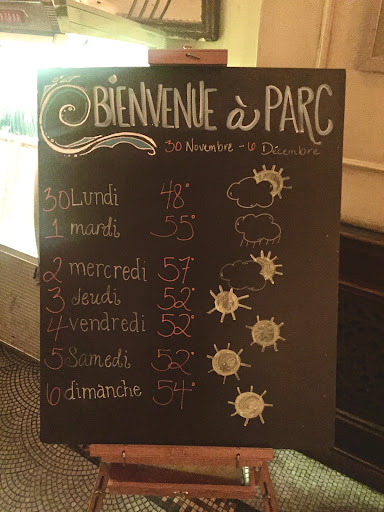 BIENVENUE à PARC
30 Novembre - 6 Décembre
30 Lundi 48°
1 mardi 55°
2 mercredi 57°
3 Jeudi 52°
4 vendredi 52°
5 Samedi 52°
6 dimanche 54°